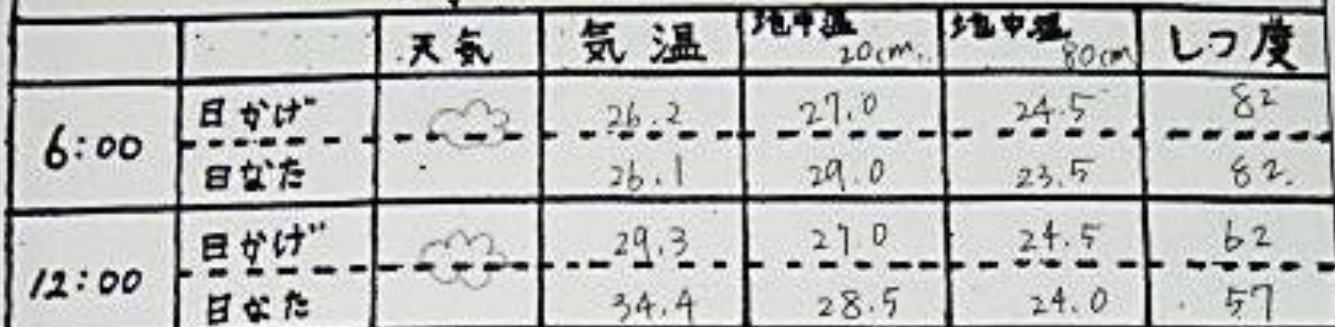 天気 気温 地中温 20cm. 地中温 80cm しつ度
6:00 日かげ 26.2 27.0 24.5 82
日なた 26.1 29.0 23.5 82.
12:00 日かげ 29.3 27.0 24.5 62
日なた 34.4 28.5 24.0 57